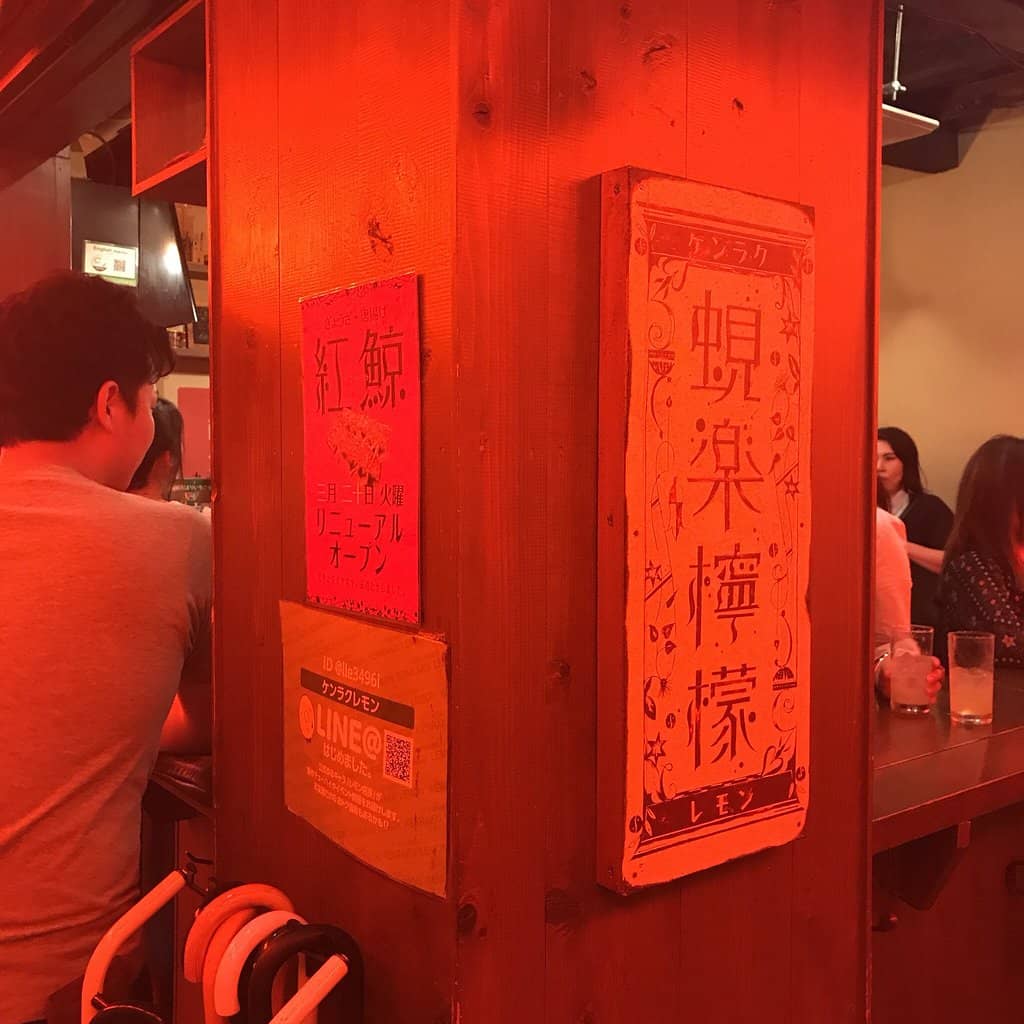 ぎょうざ・唐揚げ
紅鯨
三月二十日 火曜
リニューアル
オープン
ID @lle3496i
ケンラクレモン
LINE@
はじめました。
ケンラク
蜆楽檸檬
レモン